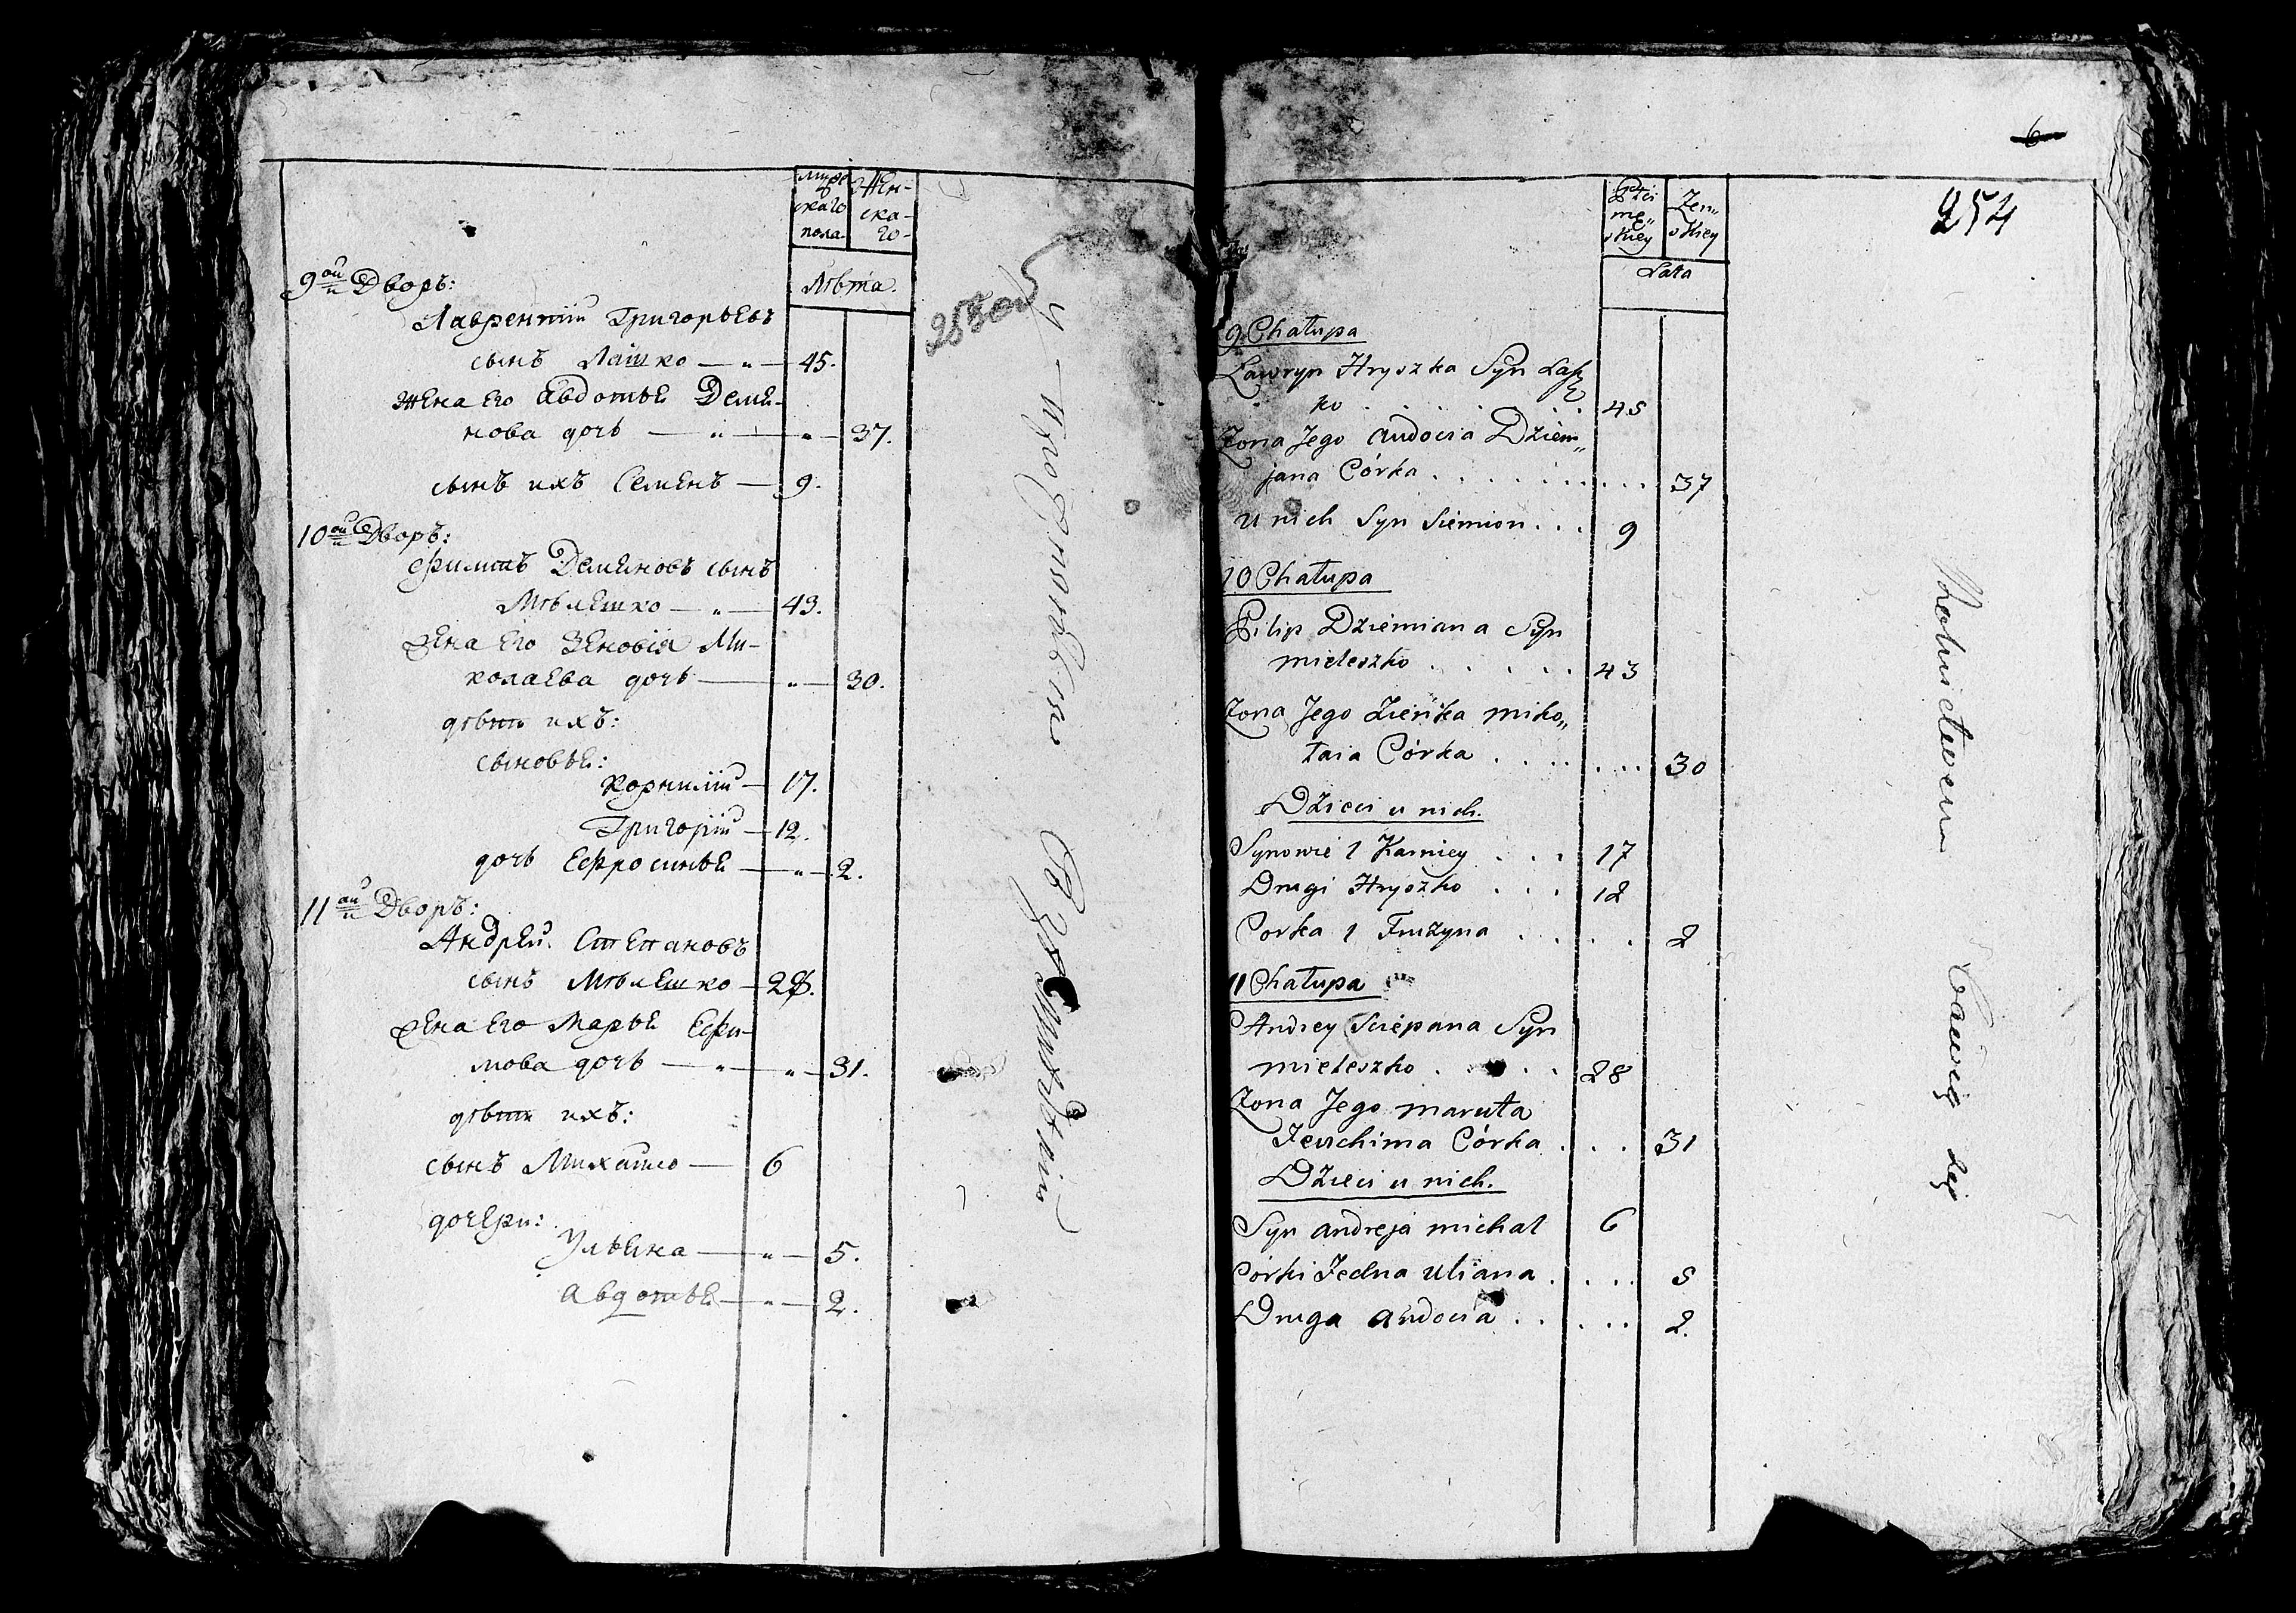 мужескаго пола
Женскаго
Лѣта.
9ой Дворъ:
Лаврентій Григорьевъ
сынъ Лашко — „ — 45.
жена его Авдотья Демя-
нова дочь — „ — „ — 37.
сынъ ихъ Семенъ — 9.
10ой Дворъ:
Филипъ Демяновъ сынъ
Мѣлешко — „ — 43.
жена его Зеновія Ми-
колаева дочь — „ — 30.
дѣти ихъ:
сыновья:
Корнилій — 17.
Григорій — 12.
дочь Ефросинья — „ — 2.
11ой Дворъ:
Андрей Степановъ
сынъ Мѣлешко — 28.
жена его Марья Ефи-
мова дочь — „ — „ — 31.
дѣти ихъ:
сынъ Михайло — 6
дочери:
Ульяна — „ — 5.
Авдотья — „ — 2.
253
6
254
Płci
mę„
skiey
Żen„
skiey
Lata
9 Chałupa
Ławryn Hryszka Syn Łasz
ko . . . . . . . 45
Żona Jego Audocia Dziem„
jana Córka . . . . . . . . . . 37
u nich Syn Siemion . . . 9
10 Chałupa
Filip Dziemiana Syn
mieleszko . . . . . 43
Żona Jego Zieńka miko„
łaia Córka . . . . . . . 30
Dzieci u nich.
Synowie 1 Karniey . . . 17
Drugi Hryszko . . . 12
Corka 1 Fruzyna . . . . 2
11 Chałupa
Andrey Sciepana Syn
mieleszko . . . . 28
Żona Jego maruta
Jeuchima Córka . . . 31
Dzieci u nich.
Syn andreja michał 6
Córki Jedna Uliana . . . . 5
Druga audocia . . . . . 2.